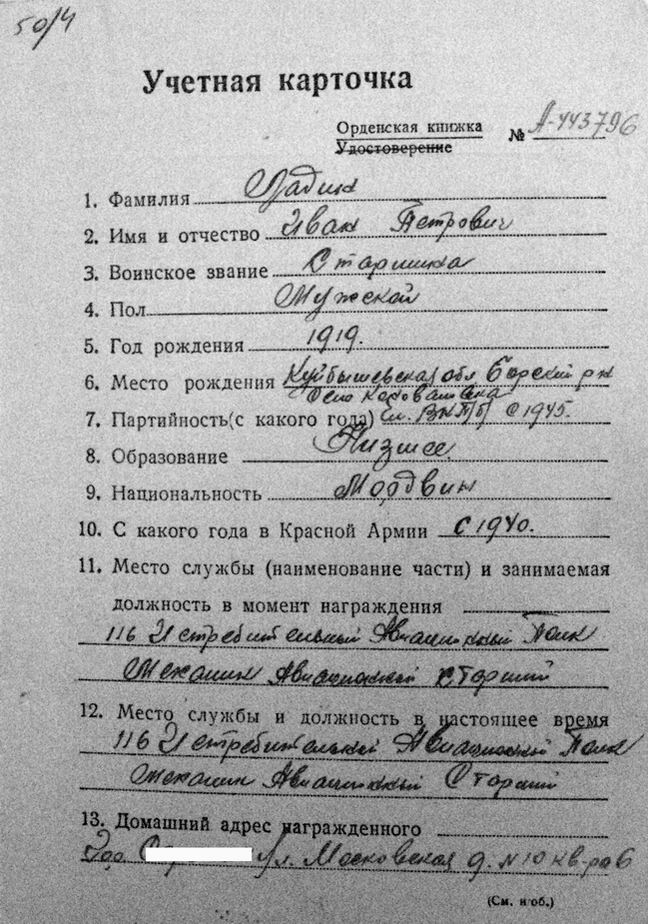 50/4
Учетная карточка
Орденская книжка
Удостоверение
№ А-443796
1. Фамилия Ладин
2. Имя и отчество Иван Петрович
3. Воинское звание Старшина
4. Пол Мужской
5. Год рождения 1919.
6. Место рождения Куйбышевская обл Борский р-н
Село
7. Партийность(с какого года) чл. ВКП/б/ с 1945.
8. Образование Низшее
9. Национальность Мордвин
10. С какого года в Красной Армии с 1940.
11. Место службы (наименование части) и занимаемая
должность в момент награждения
116 Истребительный Авиационный Полк
Механик Авиационный Старший
12. Место службы и должность в настоящее время
116 Истребительный Авиационный Полк
Механик Авиационный Старший
13. Домашний адрес награжденного
Гор. Ул. Московская д. N 10 кв-ра 6
(См. н об.)